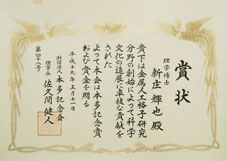 賞状
理学博士
新庄輝也殿
貴下は金属人工格子研究
分野の創始によって科学
文化の進展に卓抜な貢献を
された
よって本会は本多記念賞
および賞金を贈る
平成十九年五月十一日
財団法人本多記念会
理事長
佐久間健人
第四十八号